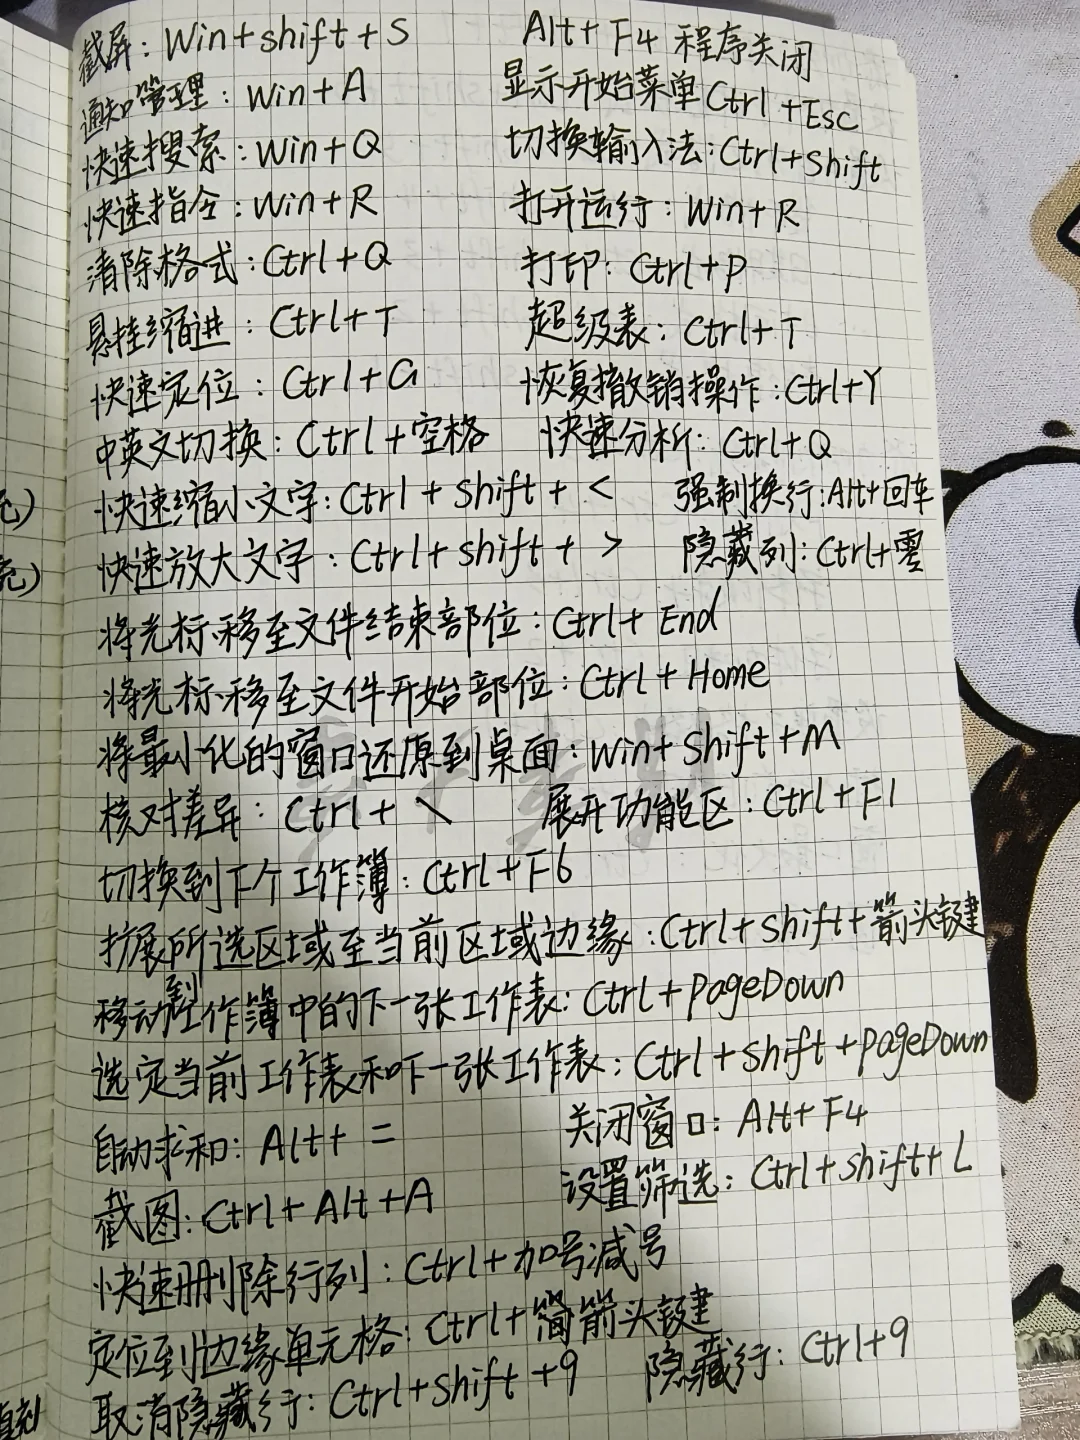 截屏：Win+shift+S Alt+F4 程序关闭
通知管理：Win+A 显示开始菜单 Ctrl+Esc
快速搜索：Win+Q 切换输入法：Ctrl+Shift
快速指令：Win+R 打开运行：Win+R
清除格式：Ctrl+Q 打印：Ctrl+P
悬挂缩进：Ctrl+T 超级表：Ctrl+T
快速定位：Ctrl+G 恢复撤销操作：Ctrl+Y
中英文切换：Ctrl+空格 快速分析：Ctrl+Q
快速缩小文字：Ctrl+shift+< 强制换行：Alt+回车
快速放大文字：Ctrl+shift+> 隐藏列：Ctrl+零
将光标移至文件结束部位：Ctrl+End
将光标移至文件开始部位：Ctrl+Home
将最小化的窗口还原到桌面：Win+Shift+M
核对差异：Ctrl+\ 展开功能区：Ctrl+F1
切换到下个工作簿：Ctrl+F6
扩展所选区域至当前区域边缘：Ctrl+shift+箭头键
移动到工作簿中的下一张工作表：Ctrl+PageDown
选定当前工作表和下一张工作表：Ctrl+shift+PageDown
自动求和：Alt+= 关闭窗口：Alt+F4
截图：Ctrl+Alt+A 设置筛选：Ctrl+shift+L
快速删除行列：Ctrl+加号减号
定位到边缘单元格：Ctrl+箭头键
取消隐藏行：Ctrl+shift+9 隐藏行：Ctrl+9